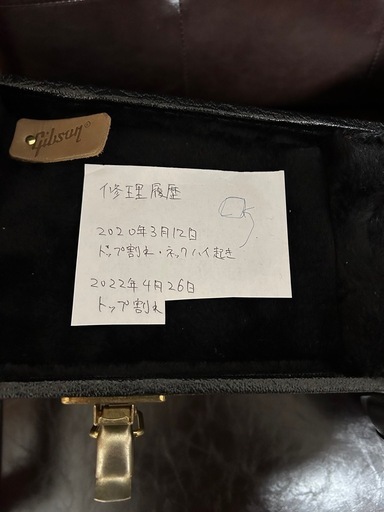 Gibson®
修理履歴
2020年3月12日
トップ割れ・ネックハイ起き
2022年4月26日
トップ割れ